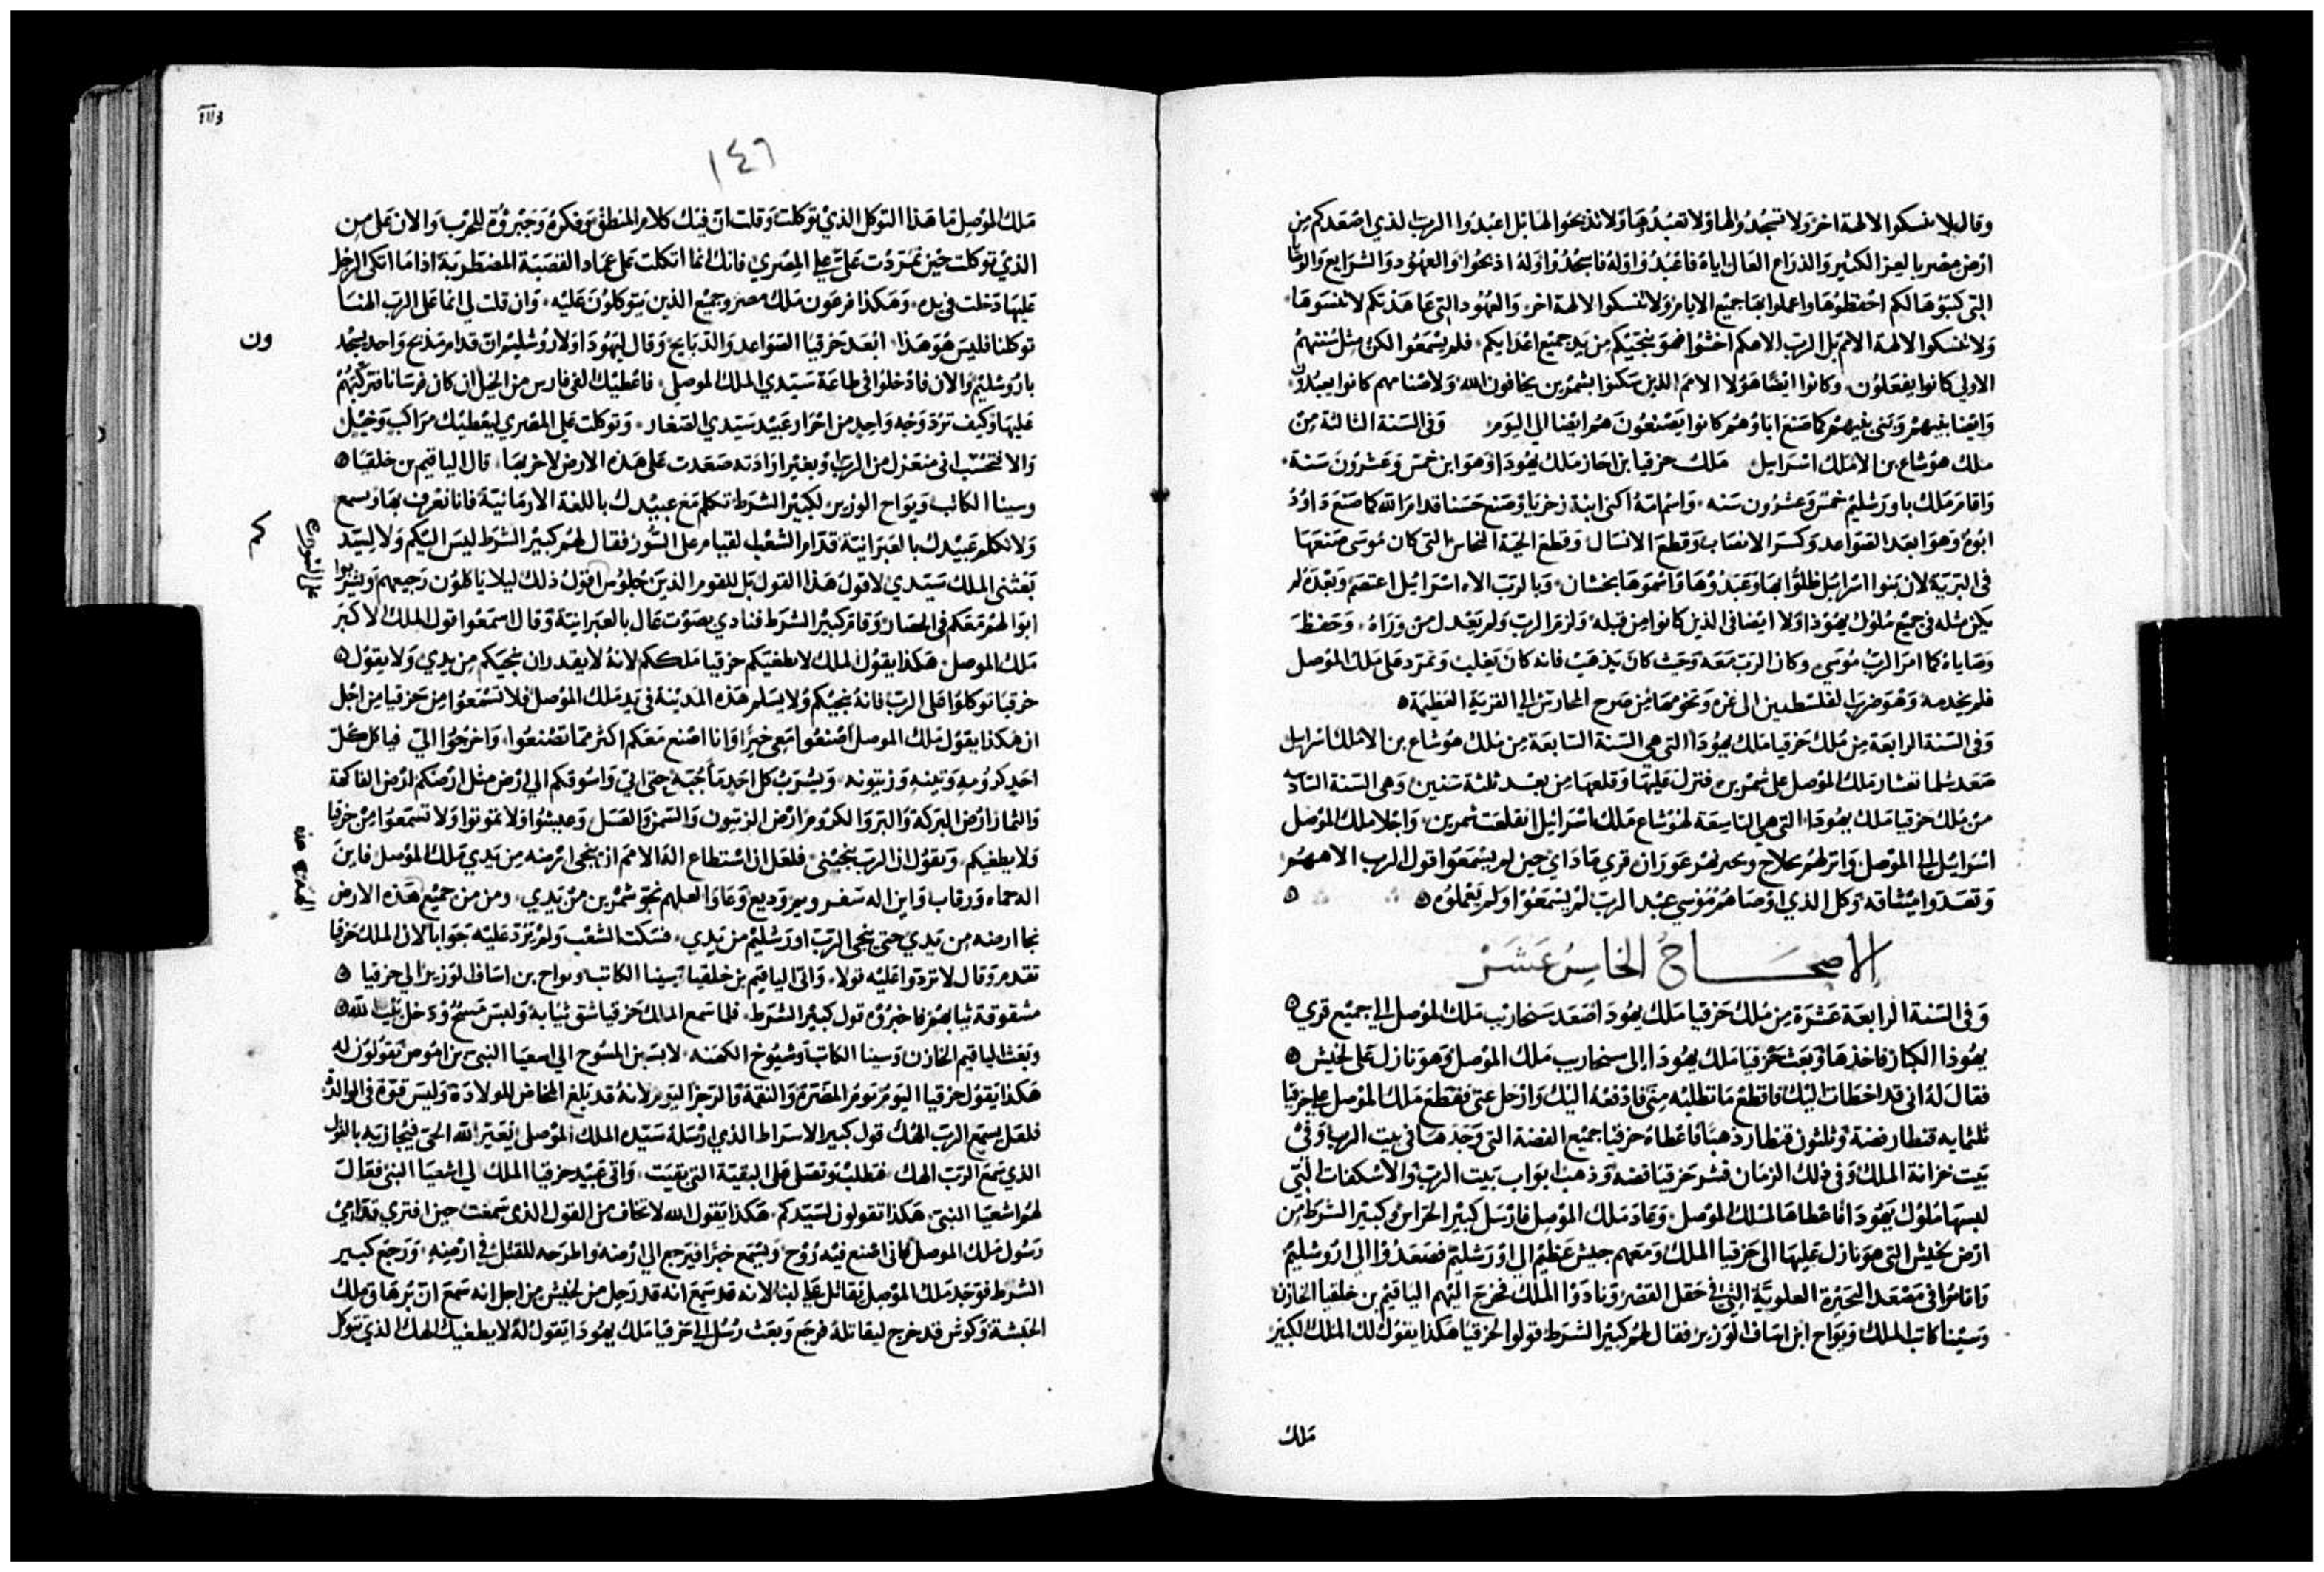 وقال لا تنسكوا الالهة اخر ولا تسجدوا لها ولا تعبدوها ولا تذبحوا لها بل اعبدوا الرب الذي اصعدكم من
ارض مصر بالعز الكبير والذراع العال اياه فاعبدوا وله فاسجدوا وله اذبحوا والعهود والشرايع والوصايا
التي كتبوها لكم احفظوها واعملوا بها جميع الايام ولا تنسكوا الالهة اخر والعهود التي عاهدتكم لا تنسوها
ولا تنسكوا الالهة الامم بل الرب الاهكم اخشوا فهو ينجيكم من يد جميع اعدايكم فلم يسمعوا لكن مثل سنتهم
الاولي كانوا يفعلون وكانوا ايضا هولا الامم الذين سكنوا بشمرين يخافون الله ولاصنامهم كانوا يعبدون
وايضا بنيهم وبني بنيهم كما صنع اباوهم كانوا يصنعون هم ايضا الي اليوم وفي السنة الثالثة من
ملك هوشاع بن الا ملك اسرايل ملك حزقيا بن احاز ملك يهودا وهو ابن خمس وعشرون سنة
واقام ملك باورشليم خمس وعشرون سنه واسم امة اكني ابنة زخريا وصنع حسنا قدام الله كما صنع داوود
ابوه وهو ابعد القواعد وكسر الانصاب وقطع الانسال وقطع الحية النحاس التي كان موسي صنعها
في البرية لان بنوا اسرايل ظلوا بها وعبدوها واسموها نخشان وبالرب الاه اسرائيل اعتصم وبعده لم
يكن مثله في جميع ملوك يهوذا ولا ايضا في الذين كانوا من قبله ولزم الرب ولم يعدل من وراه وحفظ
وصاياه كما امر الرب موسي وكان الرب معه وحيث كان يذهب فانه كان يغلب وتمرد على ملك الموصل
فلم يخدمه وهو ضرب لفلسطين الى غزه وتخومها من صرح الحارس الي القرية العظيمة
وفي السنة الرابعة من ملك حزقيا ملك يهودا التي هي السنة السابعة من ملك هوشاع بن الا ملك اسرايل
صعد شلمانعشار ملك الموصل علي شمرين فنزل عليها وقلعها من بعد ثلثة سنين وهي السنة السادسة
من ملك حزقيا ملك يهودا التي هي التاسعة لهوشاع ملك اسرائيل انقلعت شمرين واجلا ملك الموصل
اسرائيل الي الموصل وانزلهم بحلاح وبحر نهر عوران قري ماداي حين لم يسمعوا قول الرب الاههم
وتعدوا ميثاقه وكل الذي اوصاهم موسي عبد الرب لم يسمعوا ولم يعملوه
الاصحاح الخامس عشر
وفي السنة الرابعة عشرة من ملك حزقيا ملك يهودا صعد سنحارب ملك الموصل الي جميع قري
يهوذا الكبار فاخذها وبعث حزقيا ملك يهودا الى سنحارب ملك الموصل وهو نازل على لخيش
فقال له اني قد اخطات اليك فاقطع ما تطلبه مني فادفعه اليك وارحل عني فقطع ملك الموصل علي حزقيا
ثلثمايه قنطار فضة وثلثون قنطار ذهبا فاعطاه حزقيا جميع الفضة التي وجدها في بيت الرب وفي
بيت خزانة الملك وفي ذلك الزمان قشر حزقيا فضه وذهب ابواب بيت الرب والاسكفات التي
لبسها ملوك يهودا فاعطاها لملك الموصل وعاد ملك الموصل فارسل كبير الحراس وكبير الشرط من
ارض لخيش التي هو نازل عليها الى حزقيا الملك ومعهم جيش عظيم الي اورشليم فصعدوا الى اروشليم
واقاموا في مصعد البحيرة العلوية التي في حقل القصر ونادوا الملك فخرج اليهم الياقيم بن خلقيا الخازن
وسينا كاتب الملك ويواح ابن اساف الوزير فقال لهم كبير الشرط قولوا لحزقيا هكذا يقول لك الملك الكبير
ملك
١٤٦
ملك الموصل ما هذا التوكل الذي توكلت وقلت ان فيك كلام المنطق وفكرة وجبروة للحرب والان على من
الذي توكلت حين تمردت على علي المصري فانك انما اتكلت على عماد القصبة المضطربة اذا ما اتكي الرجل
عليها دخلت في يده وهكذا فرعون ملك مصر وجميع الذين يتوكلون عليه وان قلت لي انما على الرب الهنا
توكلنا فليس هو هذا ابعد حزقيا القواعد والذبايح وقال ليهودا ولاروشليم ان قدام مذبح واحد يسجد
ون
باروشليم والان فادخلوا في طاعة سيدي الملك الموصلي فاعطيك الفي فارس من الخيل ان كان فرسانا فتركبهم
عليها وكيف ترد وجه واحد من احرار عبيد سيدي الصغار وتوكلت على المصري ليعطيك مراكب وخيل
والا تحتسب اني منعزل من الرب وبغير ارادته صعدت على هذه الارض لاخربها قال الياقيم بن خلقيا
وسينا الكاتب ويواح الوزير لكبير الشرط تكلم مع عبيدك باللغة الارمانية فانا نعرف بها ونسمع
ولا تكلم عبيدك بالعبرانية قدام الشعب لقيام علي السور فقال لهم كبير الشرط ليس اليكم ولا لسيدكم
بعثني الملك سيدي لاقول هذا القول بل للقوم الذين جلوس اقول ذلك ليلا ياكلون رجيعهم ويشربوا
ابوالهم معكم في الحصار وقام كبير الشرط فنادي بصوت عال بالعبرانية وقال اسمعوا قول الملك الاكبر
ملك الموصل هكذا يقول الملك لا يطغيكم حزقيا ملككم لانه لا يقدر ان ينجيكم من يدي ولا يقول
حزقيا توكلوا على الرب فانه ينجيكم ولا يسلم هذه المدينة في يد ملك الموصل فلا تسمعوا من حزقيا من اجل
ان هكذا يقول ملك الموصل اصنعوا معي خيرا وانا اصنع معكم اكثر مما تصنعوا واخرجوا الي فياكل كل
احد كرومه وتينه وزيتونه ويشرب كل احد ما جبه حتى اتي واسوقكم الي ارض مثل ارضكم ارض الفاكهة
والثمار ارض البركة والبر والكروم ارض الزيتون والسمن والعسل وعيشوا ولا تموتوا ولا تسمعوا من حزقيا
ولا يطغيكم ويقول ان الرب ينجيني فلعل ان استطاع الاه الامم ان ينجي ارضه من يدي ملك الموصل فاين
اله حماه ورقاب واين اله سفر ويم وديع وعاوا لعلهم نجو شمرين من يدي ومن من جميع هذه الارض
نجا ارضه من يدي حتى ينجي الرب اورشليم من يدي فسكت الشعب ولم يرد عليه جوابا لان الملك حزقيا
تقدم وقال لا تردوا عليه قولا واتى الياقيم بن خلقيا وسينا الكاتب ويواح بن اساف الوزير الي حزقيا
مشقوقة ثيابهم فاخبروه قول كبير الشرط فلما سمع الملك حزقيا شق ثيابه ولبس مسح ودخل بيت الله
وبعث الياقيم الخازن وسينا الكاتب وشيوخ الكهنه لابسين المسوح الي اشعيا النبي بن اموص يقولون له
هكذا يقول حزقيا اليوم يوم المضرة والنقمة والرجز اليوم لانه قد بلغ المخاض للولادة وليس قوة في الوالدة
فلعل يسمع الرب الهك قول كبير الاسراط الذي ارسله سيده الملك الموصلي ليعير الله الحي فيجازيه بالقول
الذي سمع الرب الهك فتطلب وتصل على البقية التي بقيت واتي عبيد حزقيا الملك الي اشعيا النبي فقال
لهم اشعيا النبي هكذا تقولون لسيدكم هكذا يقول الله لا تخاف من القول الذي سمعت حين افتري قدامي
رسول ملك الموصل فاني اصنع فيه روح ويسمع خبرا فيرجع الي ارضه واطرحه للقتل في ارضه ورجع كبير
الشرط فوجد ملك الموصل يقاتل علي لبنا لانه قد سمع انه قد رحل من لخيش من اجل انه سمع ان ترهاق ملك
الحبشة وكوش قد خرج ليقاتله فرجع وبعث رسل الي حزقيا ملك يهودا يقول له لا يطغيك الهك الذي توكل